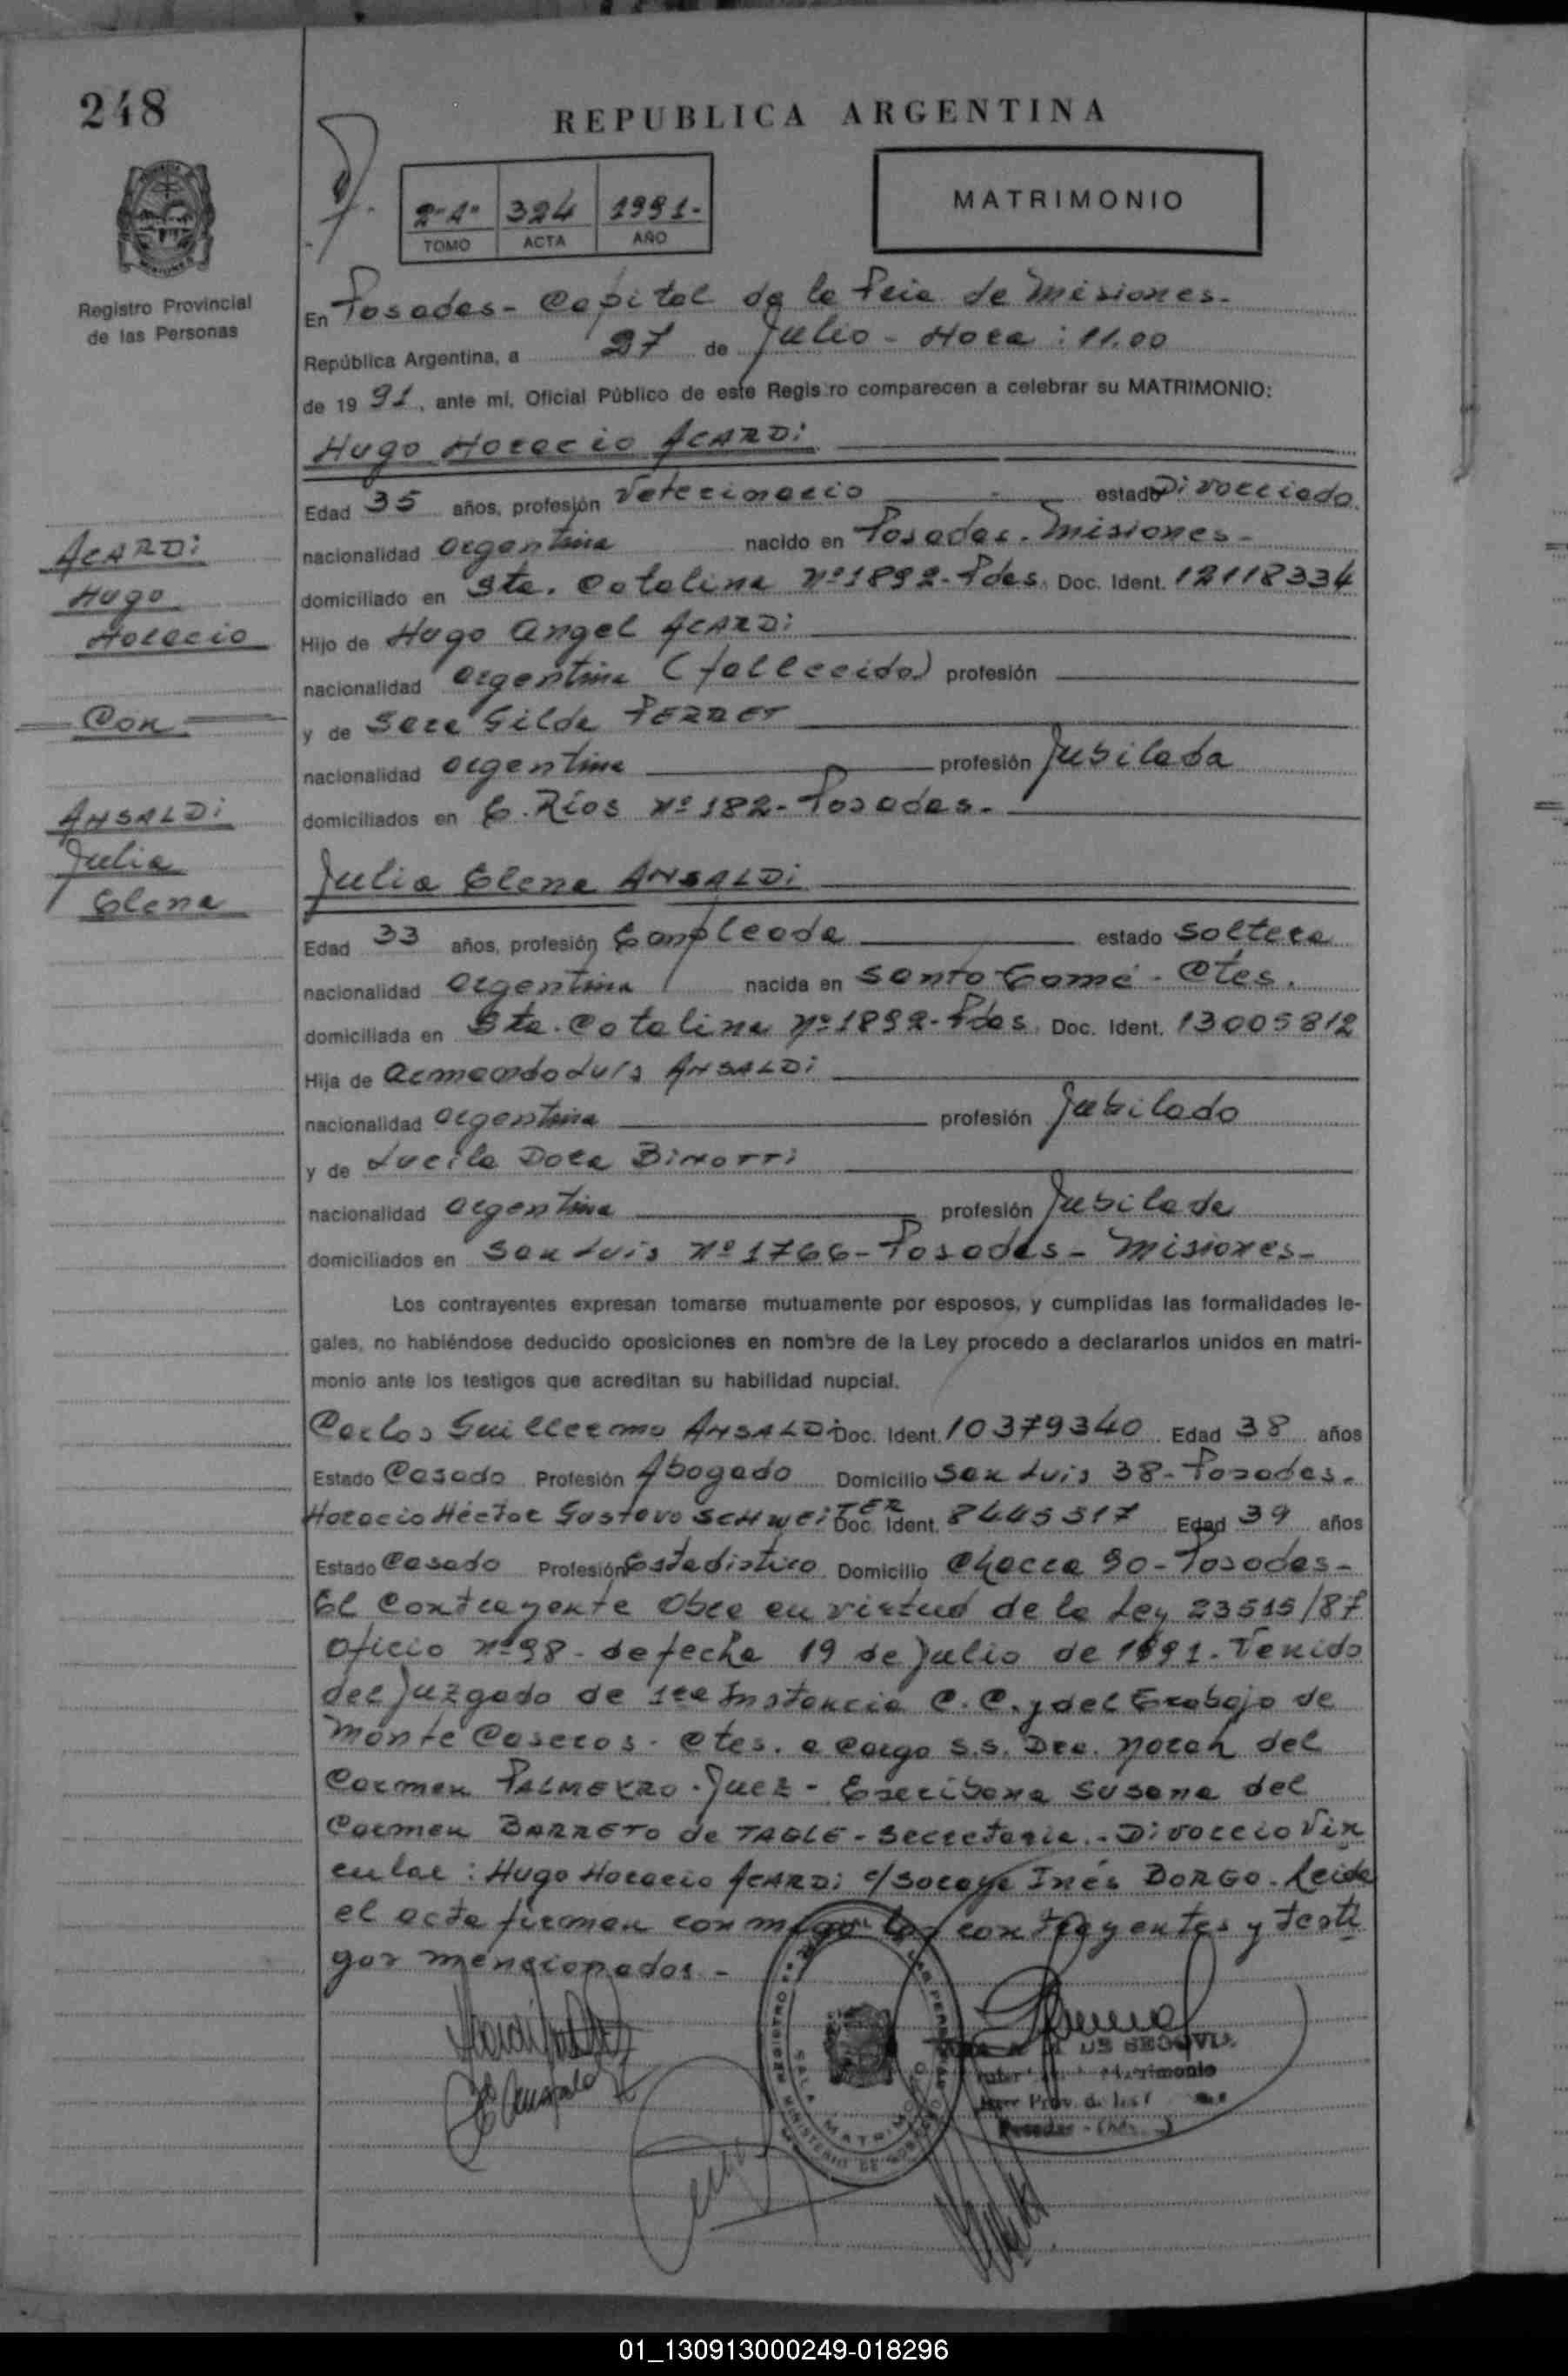 248
REPUBLICA ARGENTINA
MATRIMONIO
2º1º 324 1991-
TOMO ACTA AÑO
Registro Provincial
de las Personas
En Posadas - Capital de la Pcia de Misiones -
República Argentina, a 27 de Julio - Hora : 11.00
de 19 91, ante mí, Oficial Público de este Registro comparecen a celebrar su MATRIMONIO:
Hugo Horacio ACARDi
Edad 35 años, profesión Veterinario estado Divorciado
nacionalidad argentina nacido en Posadas - Misiones -
domiciliado en Sta. Catalina Nº 1892 - Pdas. Doc. Ident. 12118334
Hijo de Hugo Angel ACARDi
nacionalidad argentina (fallecido) profesión
y de Sara Gilda PERRET
nacionalidad argentina profesión Jubilada
domiciliados en E. Ríos Nº 182 - Posadas -
ACARDi
Hugo
Horacio
Con
ANSALDi
Julia
Elena
Julia Elena ANSALDi
Edad 33 años, profesión Empleada estado Soltera
nacionalidad argentina nacida en Santo Tomé - Ctes.
domiciliada en Sta. Catalina Nº 1892 - Pdas. Doc. Ident. 13005812
Hija de Armando Luis ANSALDi
nacionalidad argentina profesión Jubilado
y de Lucila Dora BiNOTTi
nacionalidad argentina profesión Jubilada
domiciliados en San Luis Nº 1766 - Posadas - Misiones -
Los contrayentes expresan tomarse mutuamente por esposos, y cumplidas las formalidades le-
gales, no habiéndose deducido oposiciones en nombre de la Ley procedo a declararlos unidos en matri-
monio ante los testigos que acreditan su habilidad nupcial.
Carlos Guillermo ANSALDi Doc. Ident. 10379340 Edad 38 años
Estado Casado Profesión Abogado Domicilio San Luis 38 - Posadas -
Horacio Héctor Gustavo SCHWEiTER Doc. Ident. 8445317 Edad 39 años
Estado Casado Profesión Estadístico Domicilio Chacra 90 - Posadas -
El Contrayente Obra en virtud de la Ley 23515/87
Oficio Nº 98 - de fecha 19 de Julio de 1991. Venido
del Juzgado de 1ra Instancia C. C. y del Trabajo de
Monte Caseros - Ctes. a Cargo S.S. Dra. Norah del
Carmen PALMEYRO - Juez - Escribana Susana del
Carmen BARRETO de TAGLE - Secretaria. - Divorcio Vin
cular : Hugo Horacio ACARDi c/ Soraya Inés BORGO. Leida
el acta firman conmigo los contrayentes y testi
gos mencionados. -
SALA MATRIMONIO
MINISTERIO DE GOBIERNO
DE SEGOVIA
Matrimonio
Posadas - (Mnes.)
01_130913000249-018296